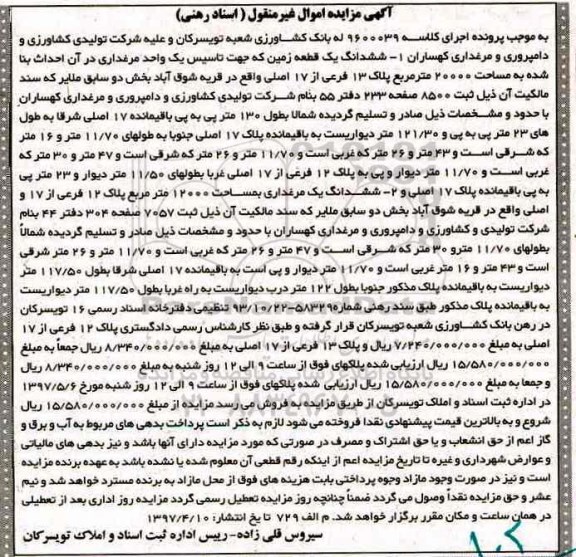 آگهی مزایده اموال غیرمنقول ( اسناد رهنی)
به موجب پرونده اجرای کلاسه ۹۶۰۰۰۳۹ له بانک کشاورزی شعبه تویسرکان و علیه شرکت تولیدی کشاورزی و
دامپروری و مرغداری کهساران ۱- ششدانگ یک قطعه زمین که جهت تاسیس یک واحد مرغداری در آن احداث بنا
شده به مساحت ۲۰۰۰۰ مترمربع پلاک ۱۳ فرعی از ۱۷ اصلی واقع در قریه شوق آباد بخش دو سابق ملایر که سند
مالکیت آن ذیل ثبت ۸۵۰۰ صفحه ۲۳۳ دفتر ۵۵ بنام شرکت تولیدی کشاورزی و دامپروری و مرغداری کهساران
با حدود و مشخصات ذیل صادر و تسلیم گردیده شمالا بطول ۱۳۰ متر پی به پی باقیمانده ۱۷ اصلی شرقا به طول
های ۲۳ متر پی به پی و ۱۲۱/۳۰ متر دیواریست به باقیمانده پلاک ۱۷ اصلی جنوبا به طولهای ۱۱/۷۰ متر و ۱۶ متر
که شرقی است و ۴۳ متر و ۲۶ متر که غربی است و ۱۱/۷۰ متر و ۲۶ متر که شرقی است و ۴۷ متر و ۳۰ متر که
غربی است و ۱۱/۷۰ متر دیوار و پی به پلاک ۱۲ فرعی از ۱۷ اصلی غربا بطولهای ۱۱/۵۰ متر دیوار و ۲۳ متر پی
به پی باقیمانده پلاک ۱۷ اصلی و ۲- ششدانگ یک مرغداری بمساحت ۱۲۰۰۰ متر مربع پلاک ۱۲ فرعی از ۱۷ و
اصلی واقع در قریه شوق آباد بخش دو سابق ملایر که سند مالکیت آن ذیل ثبت ۷۰۵۷ صفحه ۳۰۴ دفتر ۴۴ بنام
شرکت تولیدی و کشاورزی و دامپروری و مرغداری کهساران با حدود و مشخصات ذیل صادر و تسلیم گردیده شمالاً
بطولهای ۱۱/۷۰ مترو ۳۰ متر که شرقی است و ۴۷ متر و ۲۶ متر که غربی است و ۱۱/۷۰ متر و ۲۶ متر شرقی
است و ۴۳ متر و ۱۶ متر غربی است و ۱۱/۷۰ متر دیوار و پی است به باقیمانده ۱۷ اصلی شرقا بطول ۱۱۷/۵۰ متر
دیواریست به باقیمانده پلاک مذکور جنوبا بطول ۱۲۲ متر درب دیواریست به راه غربا بطول ۱۱۷/۵۰ متر دیواریست
به باقیمانده پلاک مذکور طبق سند رهنی شماره ۵۸۳۲۹-۹۳/۱۰/۲۲ تنظیمی دفترخانه اسناد رسمی ۱۶ تویسرکان
در رهن بانک کشاورزی شعبه تویسرکان قرار گرفته و طبق نظر کارشناس رسمی دادگستری پلاک ۱۲ فرعی از ۱۷
اصلی به مبلغ ۷/۲۴۰/۰۰۰/۰۰۰ ریال و پلاک ۱۳ فرعی از ۱۷ اصلی به مبلغ ۸/۳۴۰/۰۰۰/۰۰۰ ریال جمعاً به مبلغ
۱۵/۵۸۰/۰۰۰/۰۰۰ ریال ارزیابی شده پلاکهای فوق از ساعت ۹ الی ۱۲ روز شنبه به مبلغ ۸/۳۴۰/۰۰۰/۰۰۰ ریال
و جمعا به مبلغ ۱۵/۵۸۰/۰۰۰/۰۰۰ ریال ارزیابی شده پلاکهای فوق از ساعت ۹ الی ۱۲ روز شنبه مورخ ۱۳۹۷/۵/۶
در اداره ثبت اسناد و املاک تویسرکان از طریق مزایده به فروش می رسد مزایده از مبلغ ۱۵/۵۸۰/۰۰۰/۰۰۰ ریال
شروع و به بالاترین قیمت پیشنهادی نقدا فروخته می شود لازم به ذکر است پرداخت بدهی های مربوط به آب و برق و
گاز اعم از حق انشعاب و یا حق اشتراک و مصرف در صورتی که مورد مزایده دارای آنها باشد و نیز بدهی های مالیاتی
و عوارض شهرداری و غیره تا تاریخ مزایده اعم از اینکه رقم قطعی آن معلوم شده یا نشده باشد به عهده برنده مزایده
است و نیز در صورت وجود مازاد وجوه پرداختی بابت هزینه های فوق از محل مازاد به برنده مسترد خواهد شد و نیم
عشر و حق مزایده نقداً وصول می گردد ضمناً چنانچه روز مزایده تعطیل رسمی گردد مزایده روز اداری بعد از تعطیلی
در همان ساعت و مکان مقرر برگزار خواهد شد. م الف ۷۲۹ تا یخ انتشار: ۱۳۹۷/۴/۱۰
سیروس قلی زاده-رییس اداره ثبت اسناد و املاک تویسرکان